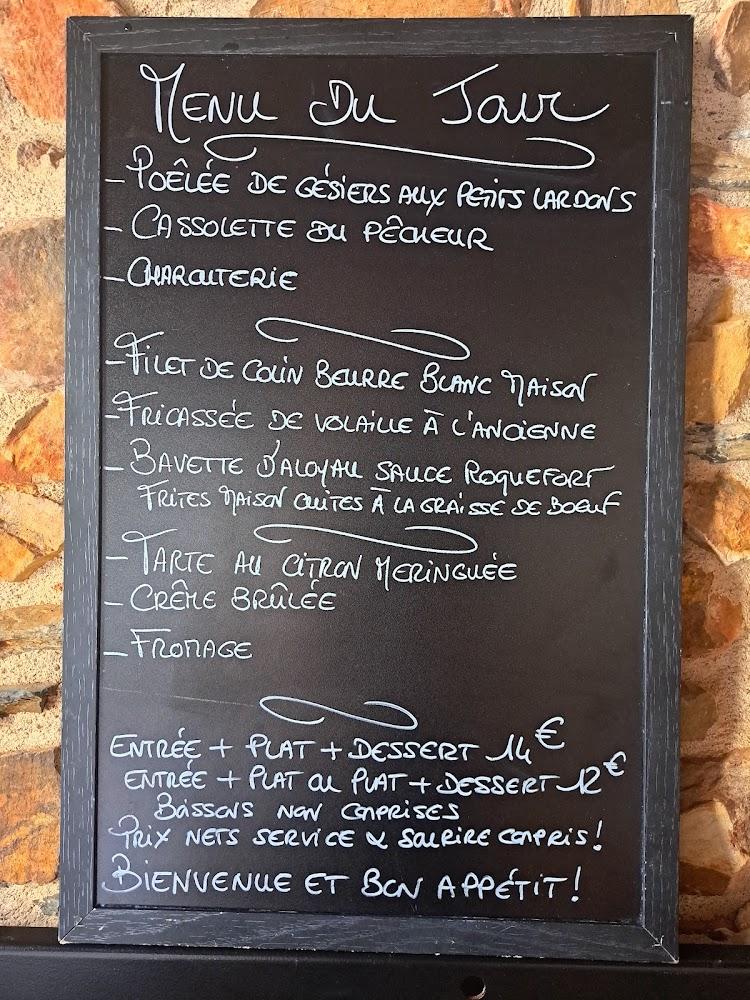 MENU DU JOUR
- POÊLÉE DE GÉSIERS AUX PETITS LARDONS
- CASSOLETTE DU PÊCHEUR
- CHARCUTERIE
- FILET DE COLIN BEURRE BLANC MAISON
- FRICASSÉE DE VOLAILLE À L'ANCIENNE
- BAVETTE D'ALOYAU SAUCE ROQUEFORT
FRITES MAISON CUITES À LA GRAISSE DE BOEUF
- TARTE AU CITRON MERINGUÉE
- CRÊME BRÛLÉE
- FROMAGE
ENTRÉE + PLAT + DESSERT 14€
ENTRÉE + PLAT OU PLAT + DESSERT 12€
BOISSONS NON COMPRISES
PRIX NETS SERVICE & SOURIRE COMPRIS!
BIENVENUE ET BON APPÉTIT!